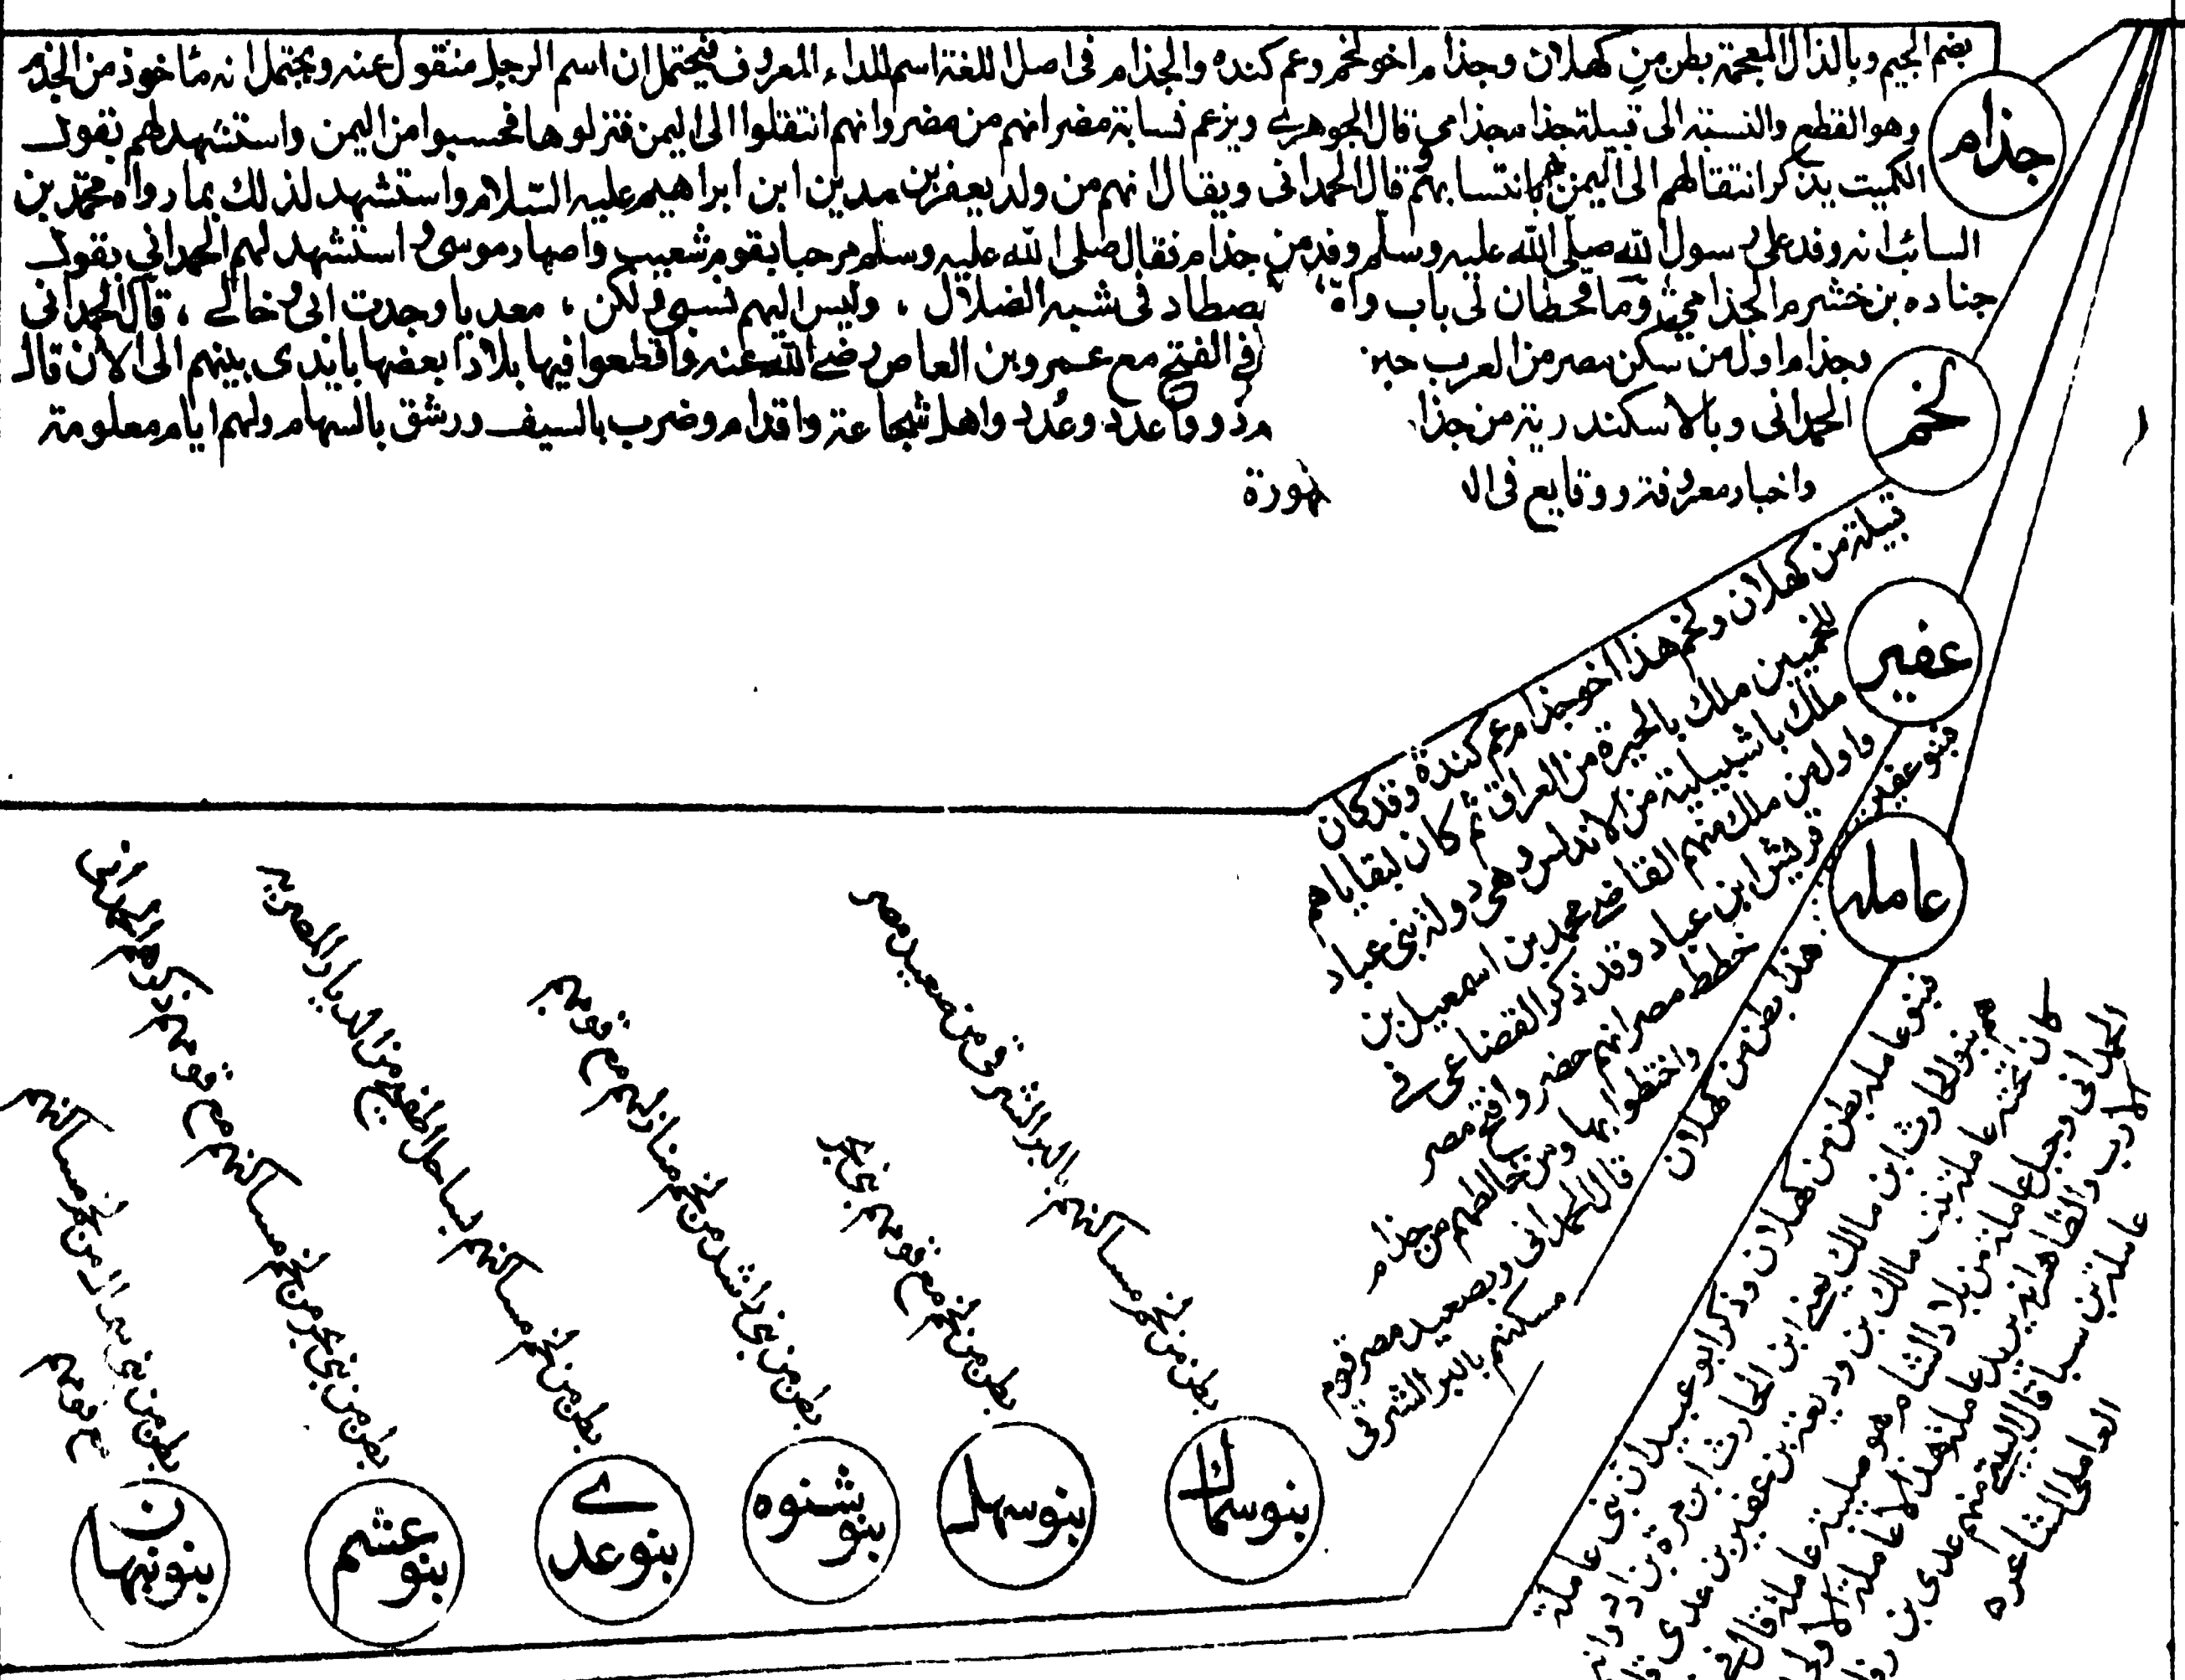 جذام
بضم الجيم وبالذال المعجمة بطن من كهلان وجذام اخو لخم وعم كنده والجذام فى اصل اللغة اسم للداء المعروف فيحتمل ان اسم الرجل منقول عنه ويحتمل انه مأخوذ من الجذم
وهو القطع والنسبة الى قبيلة جذام جذامى قال الجوهرى ويزعم نسابة مضر انهم من مضر وانهم انتقلوا الى اليمن فنزلوها فحسبوا من اليمن واستشهد لهم بقول
الكميت يذكر انتقالهم الى اليمن بانتسابهم قال الحمدانى ويقال انهم من ولد يعفر بن مدين ابن ابراهيم عليه السلام واستشهد لذلك بما رواه محمد بن
السائب انه وفد على رسول الله صلى الله عليه وسلم وفد من جذام فقال صلى الله عليه وسلم مرحبا بقوم شعيب واصهار موسى واستشهد لهم الحمدانى بقول
جناده بن خشرم الجذامى وما قحطان لى باب وام تصطاد فى شبه الضلال ، وليس اليهم نسبى ولكن ، معديا وجدت ابى وخالى ، قال الحمدانى
وجذام اول من سكن مصر من العرب فى الفتح مع عمرو بن العاص رضى الله عنه واقطعوا فيها بلادا بعضها بايدى بينهم الى الان قال
الحمدانى وبالاسكندرية من جذام ذوو عدد وعُدد واهل شجاعة واقدام وضرب بالسيف ورشق بالسهام ولهم ايام معلومة
واخبار معروفة ووقايع فى ال
لخم
قبيلة من كهلان ولخم هذا اخو جذام عم كندة وقد كان
للخميين ملك بالحيرة من العراق ثم كان لبقاياهم
ملك باشبيلية من الاندلس وهى دولة بنى عباد
واول من ملك منهم القاضى محمد بن اسمعيل بن
قريش ابن عباد وقد ذكر القضاعى فى
خطط مصر انهم حضروا فتح مصر
واختطوا بها ومن خالطهم من جذام
قال الحمدانى وبصعيد مصر قوم
مسكنهم بالبر الشرقى
عفير
فبنو عفير
هذا بطن من كهلان
عامله
فبنو عامله بطن من كهلان وذكر ابو عبيد ان بنى عاملة
هم بنو الحارث ابن مالك يعنى ابن الحارث ابن مرة بن ادد وانه
كان تحته عاملة بنت مالك بن وديعة بن عفير بن عدى
الحمدانى وجبل عاملة من بلاد الشام هو مبلبنى عاملة قال فى
الادب والظاهر انه يريد عاملة هذه لا عاملة الاولى
عاملة بن سبا قال منهم عدى بن
العاملى الشاعره
بنو سماك
بطن من لخم مساكنهم بالبر الشرقى من صعيد مصر
بنو سهل
بطن من لخم مع قومهم بنى بحر
بنو شنوه
بطن من بنى راشد من لخم منازلهم مع قومهم
بنو عدى
بطن من لخم مساكنهم بساحل اطفيح من الديار المصريه
بنو عشم
بطن من بنى بحر من لخم مساكنهم مع قومهم ذكرهم الحمدانى
بنو نبهان
بطن من بنى من لخم مساكنهم
مع قومهم